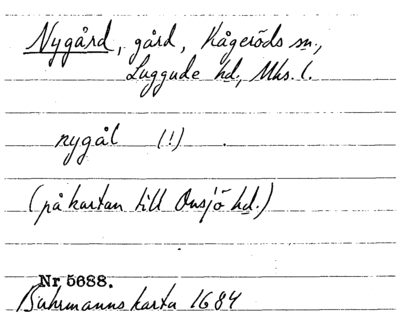 Nygård, gård, Kågeröds sn.,
Luggude hd., Mhs. l.
nygål (!)
(på kartan till Onsjö hd.)
Nr 5688.
Buhrmanns karta 1684